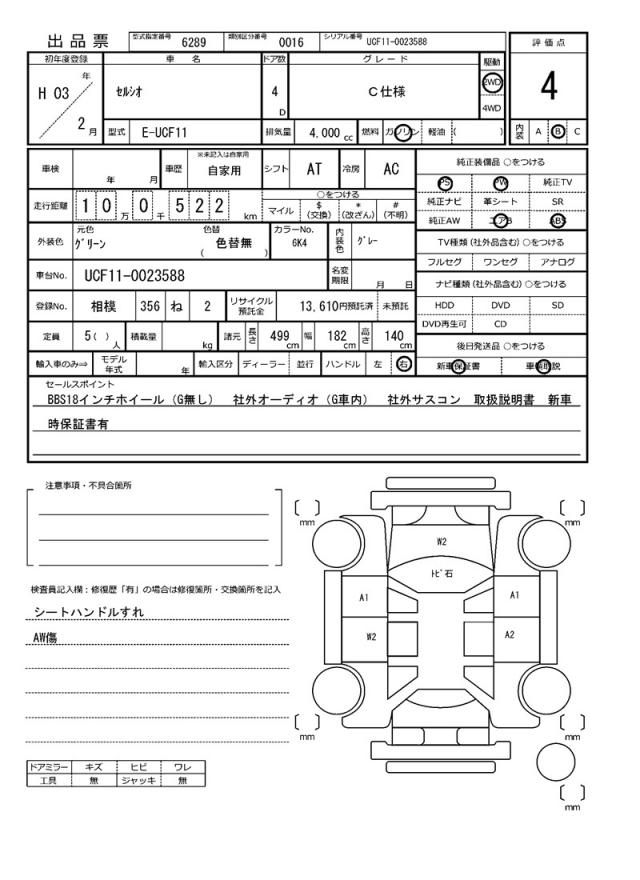 出品票 型式指定番号 6289 類別区分番号 0016 シリアル番号 UCF11-0023588
評価点
4
内装 A B C
初年度登録 車名 ドア数 グレード 駆動
H 03 年 2 月
ｾﾙｼｵ 4 D C仕様 2WD 4WD
型式 E-UCF11 排気量 4,000 cc 燃料 ガソリン 軽油 ( )
車検 年 月 車歴 ※未記入は自家用 自家用 シフト AT 冷房 AC
走行距離 1 0 万 0 千 5 2 2 km
○をつける
マイル $(交換) *(改ざん) #(不明)
外装色 元色 ｸﾞﾘｰﾝ 色替 色替無 ( ) カラーNo. 6K4 内装色 ｸﾞﾚｰ
車台No. UCF11-0023588 名変期限 月 日
登録No. 相模 356 ね 2 リサイクル預託金 13,610円預託済 未預託
定員 5( ) 人 積載量 kg 諸元 長さ 499 cm 幅 182 cm 高さ 140 cm
輸入車のみ⇒ モデル年式 年 輸入区分 ディーラー 並行 ハンドル 左 右
純正装備品 ○をつける
PS PW 純正TV
純正ナビ 革シート SR
純正AW エアB ABS
TV種類(社外品含む) ○をつける
フルセグ ワンセグ アナログ
ナビ種類(社外品含む) ○をつける
HDD DVD SD
DVD再生可 CD
後日発送品 ○をつける
新車保証書 車輌取説
セールスポイント
BBS18インチホイール（G無し） 社外オーディオ（G車内） 社外サスコン 取扱説明書 新車
時保証書有
注意事項・不具合箇所
検査員記入欄：修復歴「有」の場合は修復箇所・交換箇所を記入
シートハンドルすれ
AW傷
ドアミラー キズ ヒビ ワレ
工具 無 ジャッキ 無
mm mm
W2
ﾄﾋﾞ石
A1 A1
W2 A2
mm mm
mm